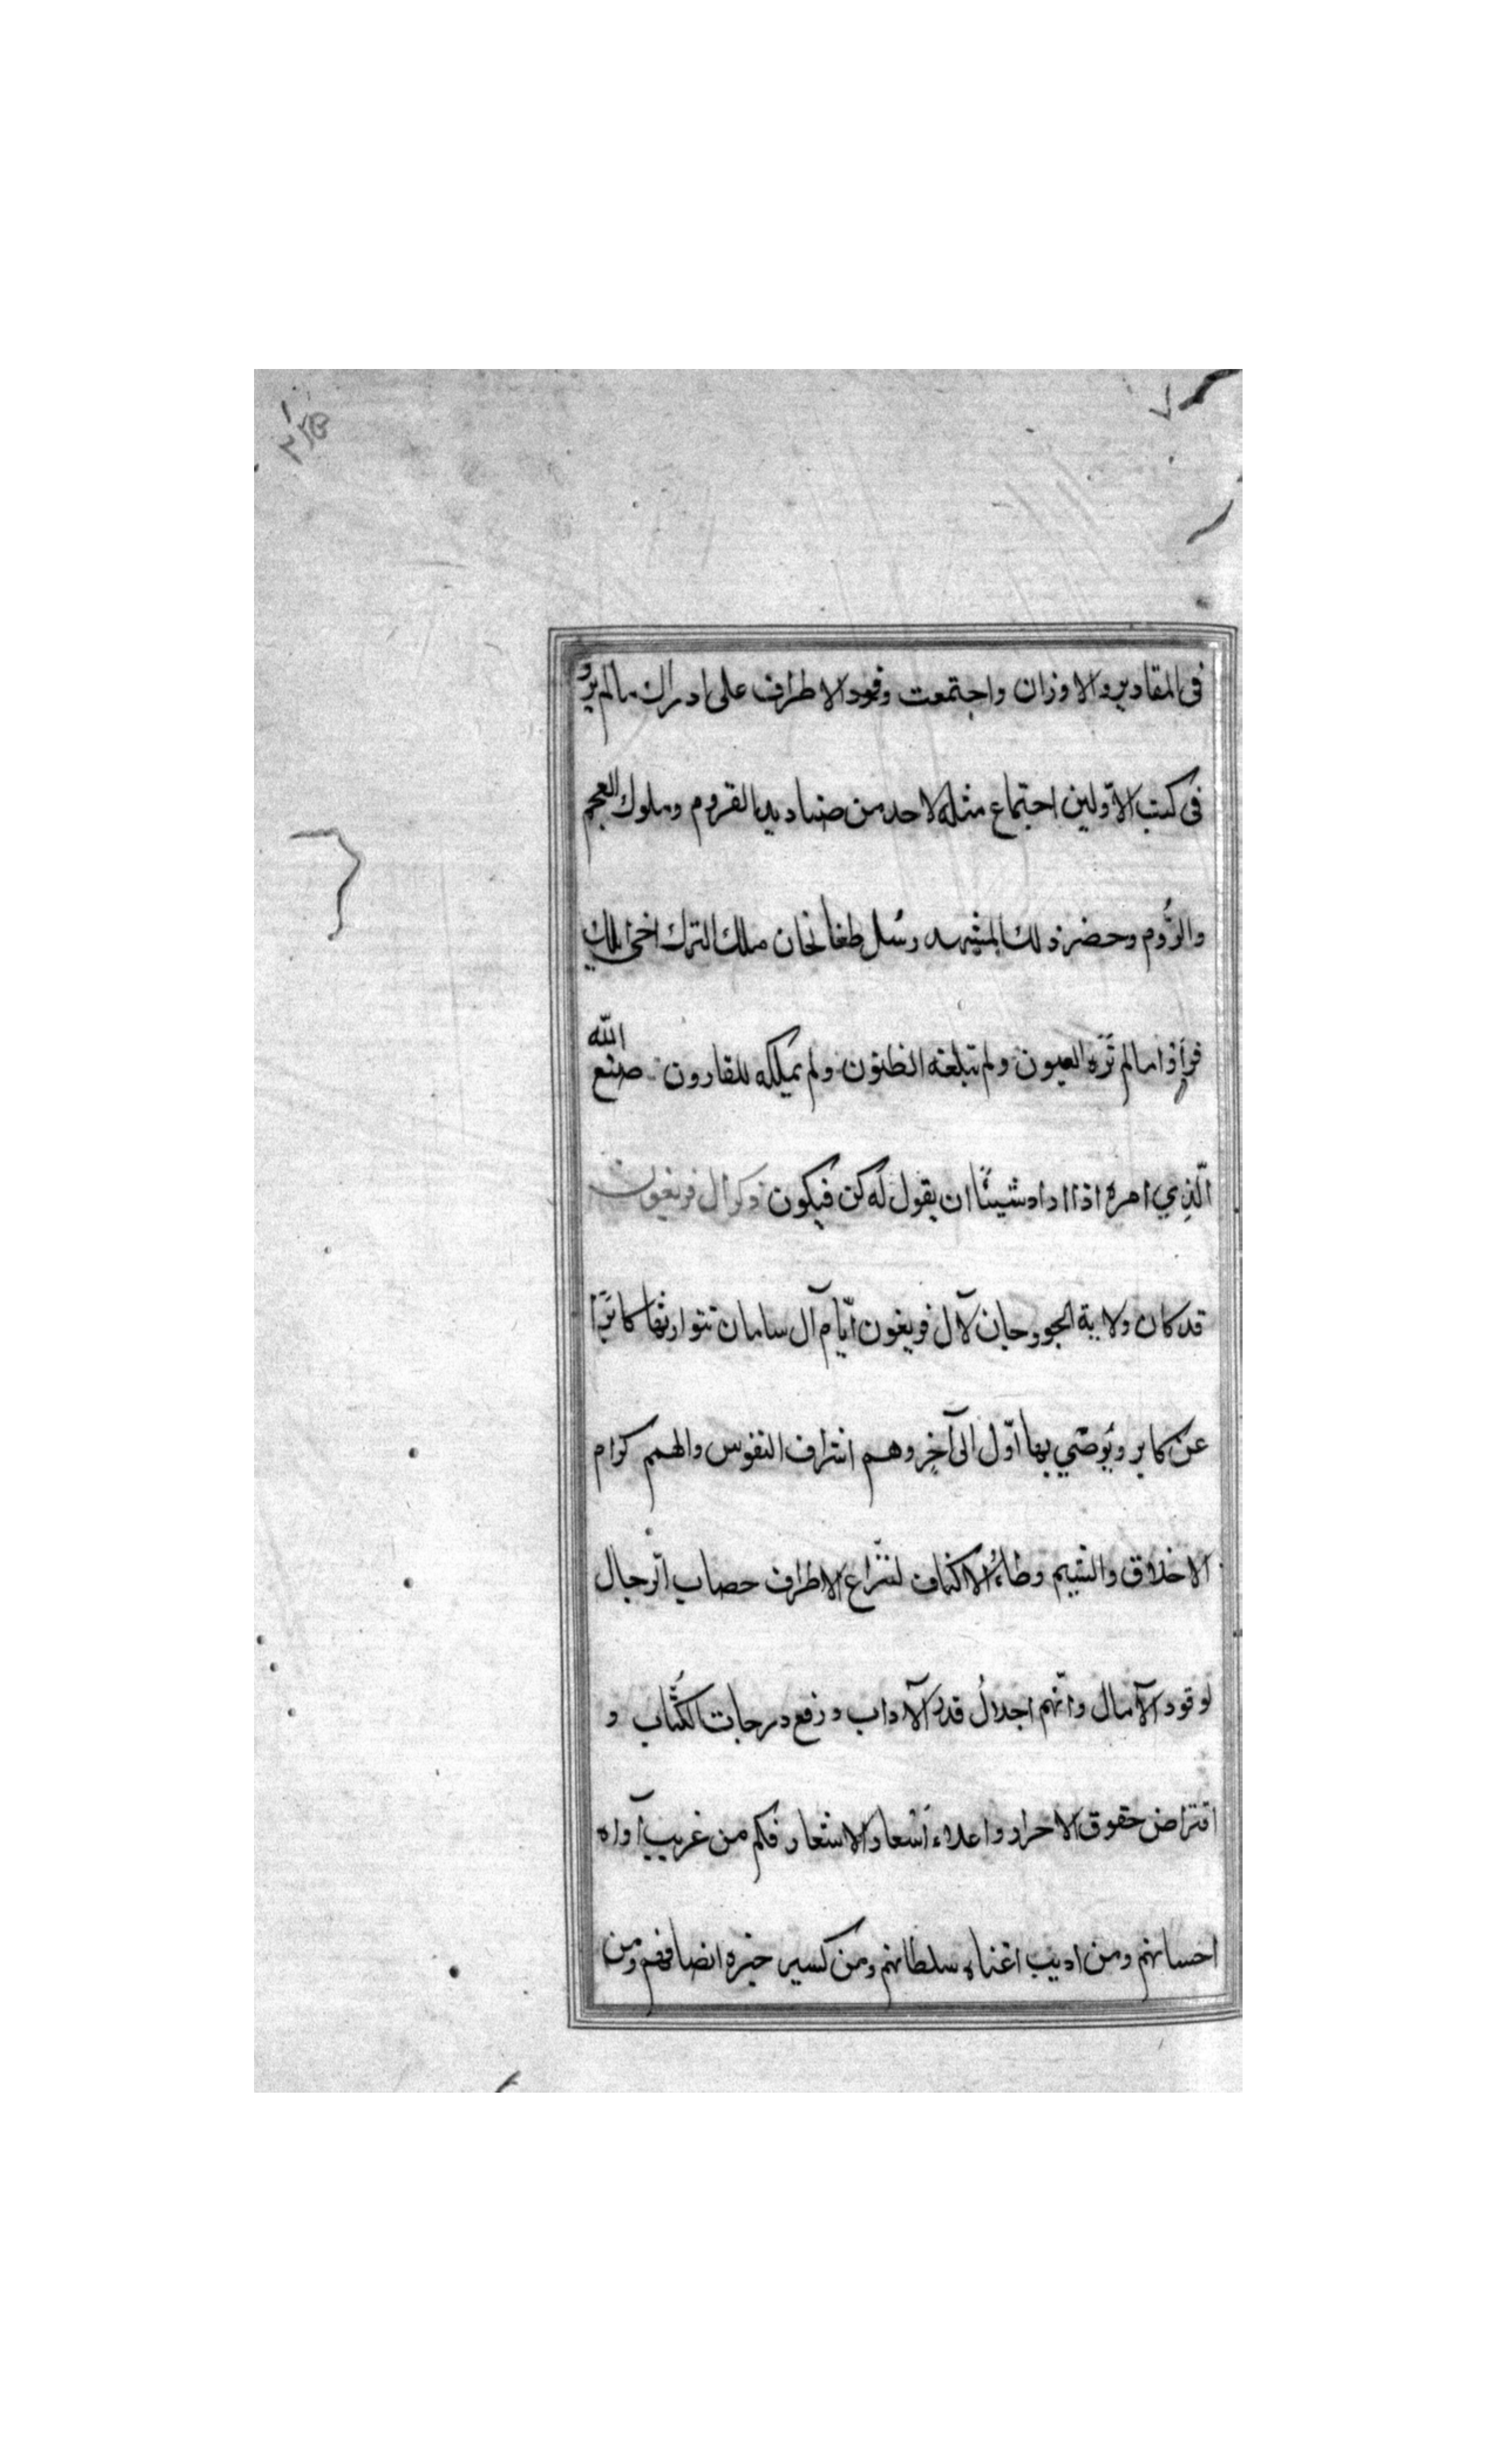 في المقادير والاوزان واجتمعت وفود الاطراف على ادراك مالم يرو
في كتب الاوّلين اجتماع مثله لاحد من صناديد القروم وملوك العجم
والرُّوم وحضر ذلك المشهد رسُل طغانخان ملك الترك اخى ايلك
فرأوا ما لم تَرَه العيون ولم تبلغه الظنون ولم يملكه للقارون صنع الله
الّذِي امره اذا اراد شيئًا ان يقول له كن فيكون ذكر آل فريغون
قد كان ولاية الجوزجان لآل فريغون أيّام آل سامان تتوارثها كابرًا
عن كابر ويُوصّي بها اوّل الى آخِر وهم اشراف النفوس والهمم كرام
الاخلاق والشيم وطاءُ الاكناف لنُزّاع الاطراف خصاب الرّحال
لوفود الآمال وانّهم اجلالُ قدر الآداب ورفع درجات الكُتّاب و
افتراض حقوق الاحرار واعلاء اَسْعار الاشعار فكم من غريب آواه
احسانهم ومن اديب اغناه سلطانهم ومن كسير جبره انصافهم ومن